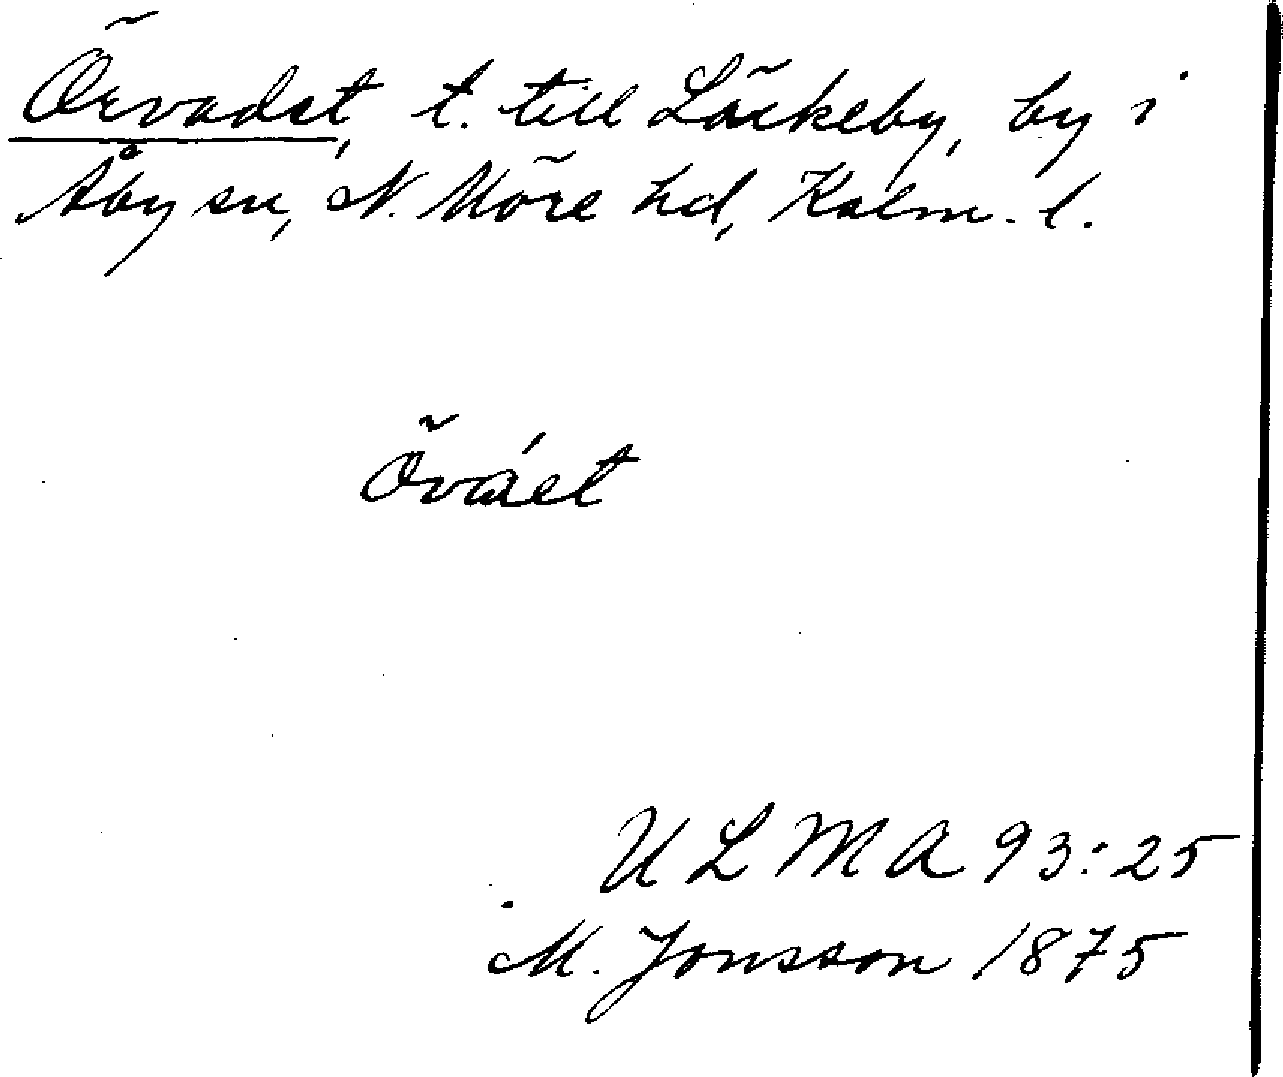 Örvadet, t. till Läckeby, by i
Åby sn, N. Möre hd, Kalm. l.
Öváet
ULMA 93:25
M. Jonsson 1875